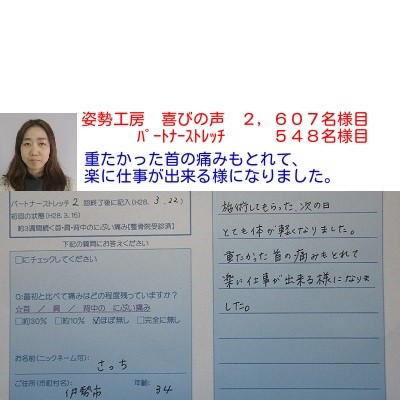 姿勢工房　喜びの声　２，６０７名様目
ﾊﾟｰﾄﾅｰｽﾄﾚｯﾁ　　　５４８名様目
重たかった首の痛みもとれて、
楽に仕事が出来る様になりました。
パートナーストレッチ 2 回終了後に記入(H28. 3.22)
初回の状態(H28.3.15)
約3週間続く首・肩・背中のにぶい痛み【整骨院受診済】
下記の質問にお答えください
□にチェックしてください
Q:最初と比べて痛みはどの程度残っていますか?
☆首 / 肩 / 背中の にぶい痛み
□約30% □約10% ☑ほぼ無し □完全に無し
お名前(ニックネーム可): さっち
ご住所(市町村名): 伊勢市 年齢: 34
施術してもらった、次の日
とても体が軽くなりました。
重たかった首の痛みもとれて
楽に仕事が出来る様になりま
した。